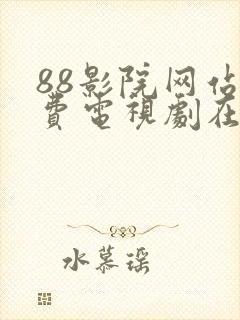 88影院网佔
費電視劇在
水慕瑶